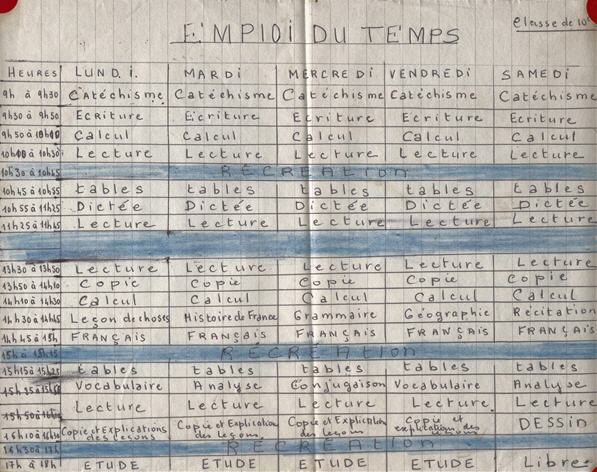 EMPLOI DU TEMPS
Classe de 10e
HEURES LUNDI. MARDI MERCREDI VENDREDI SAMEDI
9h à 9h30 Catéchisme Catéchisme Catéchisme Catéchisme Catéchisme
9h30 à 9h50 Ecriture Ecriture Ecriture Ecriture Ecriture
9h50 à 10h00 Calcul Calcul Calcul Calcul Calcul
10h00 à 10h30 Lecture Lecture Lecture Lecture Lecture
10h30 à 10h45 RÉCRÉATION
10h45 à 10h55 tables tables tables tables tables
10h55 à 11h25 Dictée Dictée Dictée Dictée Dictée
11h25 à 11h Lecture Lecture Lecture Lecture Lecture
13h30 à 13h50 Lecture Lecture Lecture Lecture Lecture
13h50 à 14h10 Copie Copie Copie Copie Copie
14h10 à 14h30 Calcul Calcul Calcul Calcul Calcul
14h30 à 14h45 Leçon de choses Histoire de France Grammaire Géographie Récitation
14h45 à 15h FRANÇAIS FRANÇAIS FRANÇAIS FRANÇAIS FRANÇAIS
15h à 15h15 RÉCRÉATION
15h15 à 15h25 tables tables tables tables tables
15h35 à Vocabulaire Analyse Conjugaison Vocabulaire Analyse
15h50 à Lecture Lecture Lecture Lecture Lecture
Copie et Explication des leçons Copie et Explication des leçons Copie et Explication des leçons Copie et explication des leçons DESSIN
16h30 à 17h RÉCRÉATION
17h à 18h ETUDE ETUDE ETUDE ETUDE Libre